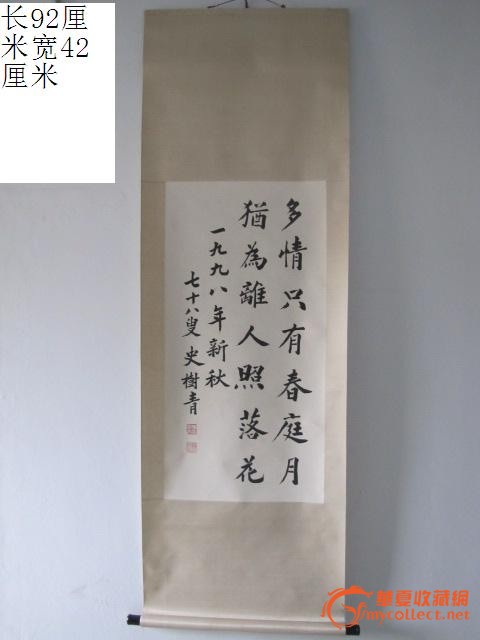 长92厘
米宽42
厘米
多情只有春庭月
猶為離人照落花
一九九八年新秋
七十八叟 史樹青
華夏收藏網
mycollect.com